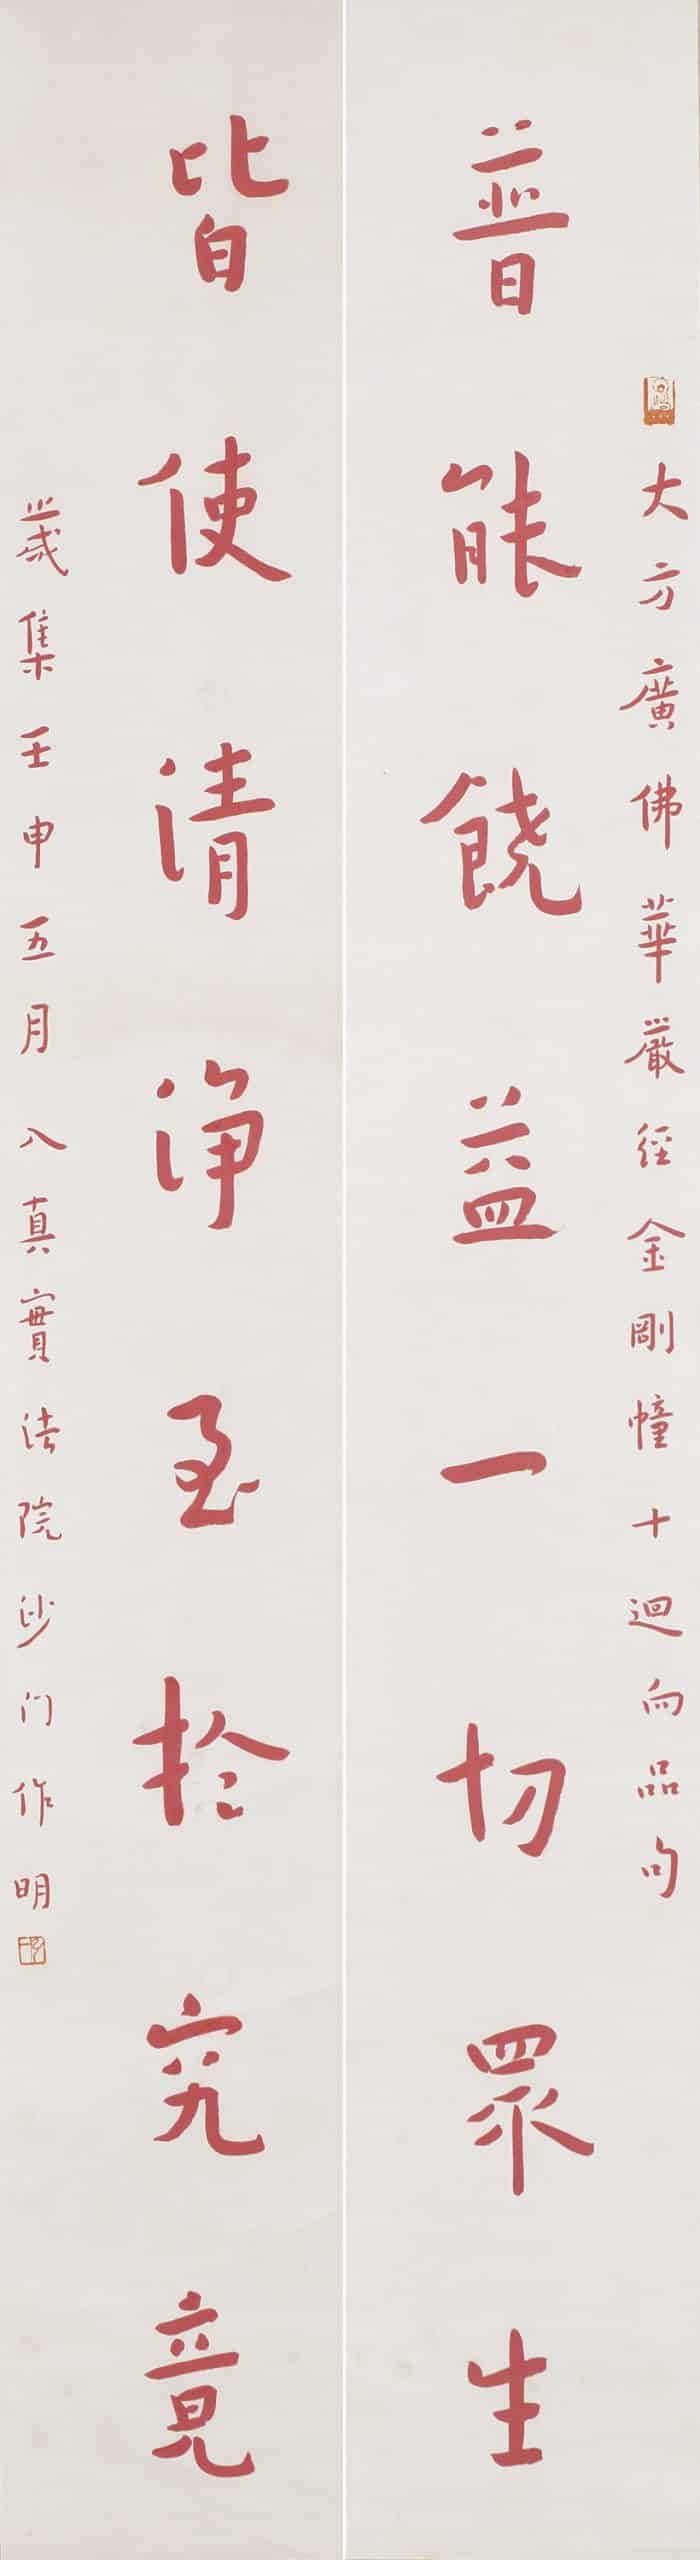 大方廣佛華嚴經金剛幢十迴向品句
普能饒益一切眾生
皆使清淨至於究竟
歲集壬申五月 入真實法院沙门作明